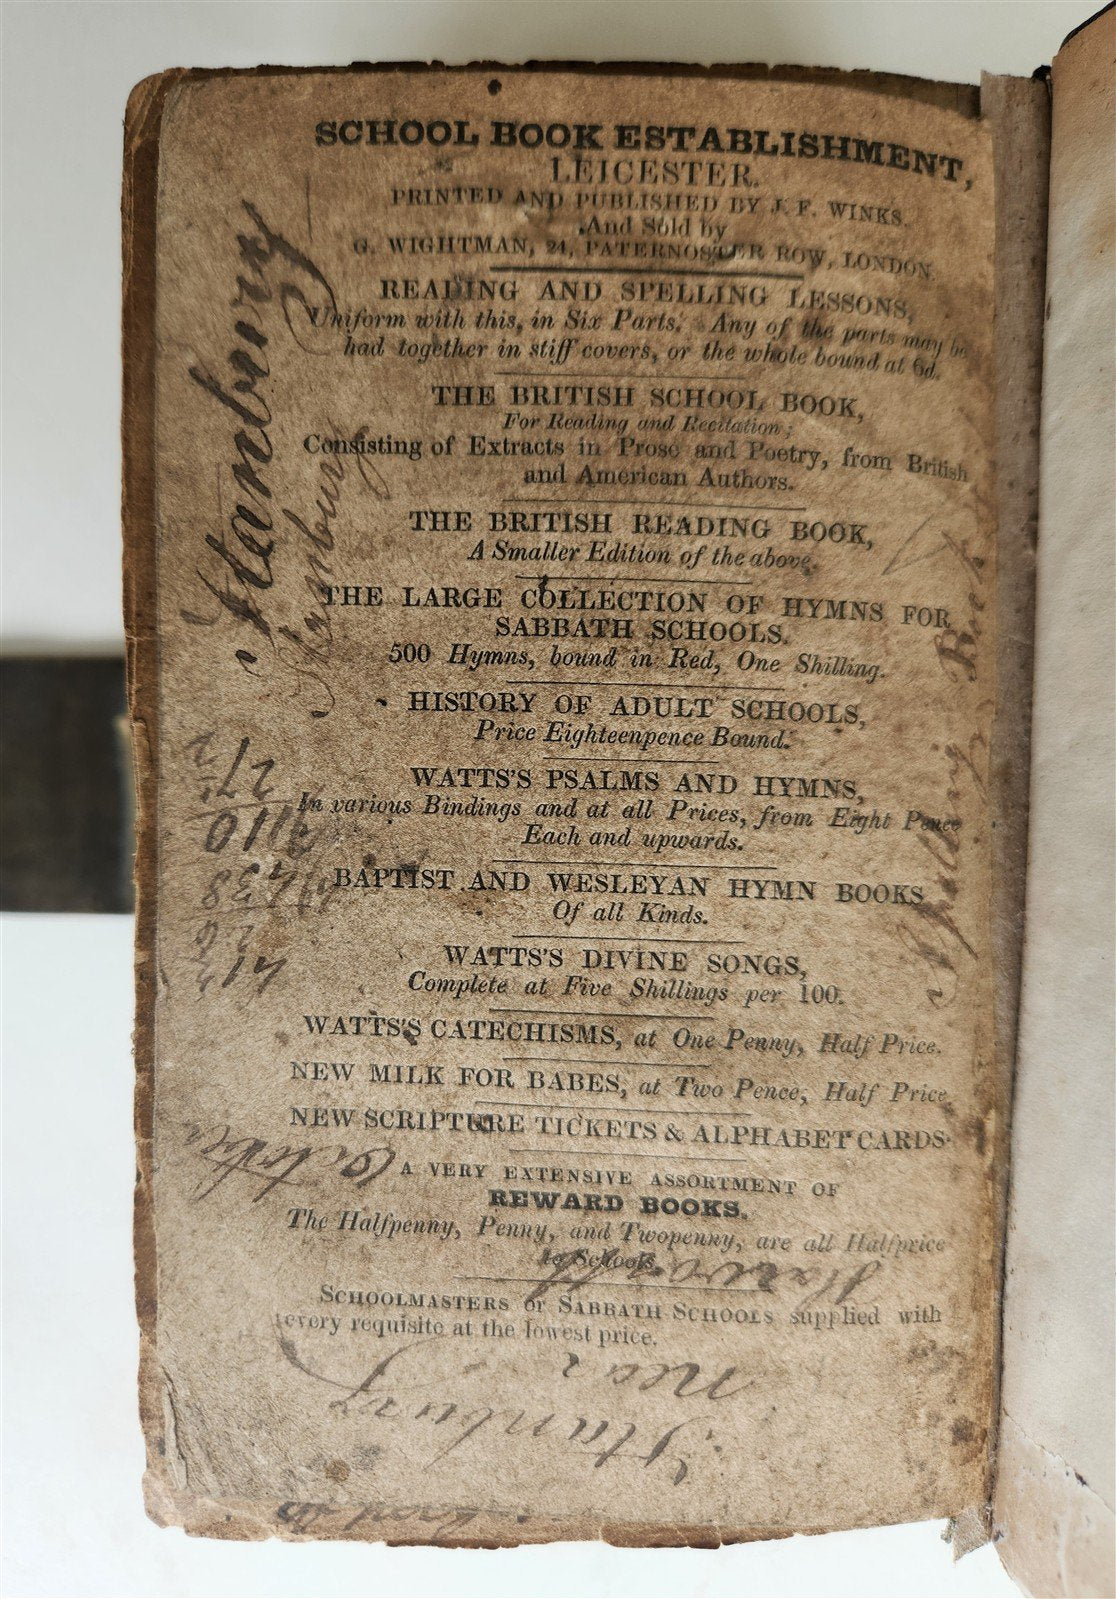 SCHOOL BOOK ESTABLISHMENT,
LEICESTER.
PRINTED AND PUBLISHED BY J. F. WINKS.
And Sold by
G. WIGHTMAN, 24, PATERNOSTER ROW, LONDON.
READING AND SPELLING LESSONS,
Uniform with this, in Six Parts. Any of the parts may be
had together in stiff covers, or the whole bound at 6d.
THE BRITISH SCHOOL BOOK,
For Reading and Recitation;
Consisting of Extracts in Prose and Poetry, from British
and American Authors.
THE BRITISH READING BOOK,
A Smaller Edition of the above.
THE LARGE COLLECTION OF HYMNS FOR
SABBATH SCHOOLS.
500 Hymns, bound in Red, One Shilling.
HISTORY OF ADULT SCHOOLS,
Price Eighteenpence Bound.
WATTS'S PSALMS AND HYMNS,
In various Bindings and at all Prices, from Eight Pence
Each and upwards.
BAPTIST AND WESLEYAN HYMN BOOKS
Of all Kinds.
WATTS'S DIVINE SONGS,
Complete at Five Shillings per 100.
WATTS'S CATECHISMS, at One Penny, Half Price.
NEW MILK FOR BABES, at Two Pence, Half Price
NEW SCRIPTURE TICKETS & ALPHABET CARDS.
A VERY EXTENSIVE ASSORTMENT OF
REWARD BOOKS.
The Halfpenny, Penny, and Twopenny, are all Halfprice
to Schools.
SCHOOLMASTERS or SABBATH SCHOOLS supplied with
every requisite at the lowest price.
Stanbury
Stanbury
A Spelling Book
October
Haworth
near
Stanbury